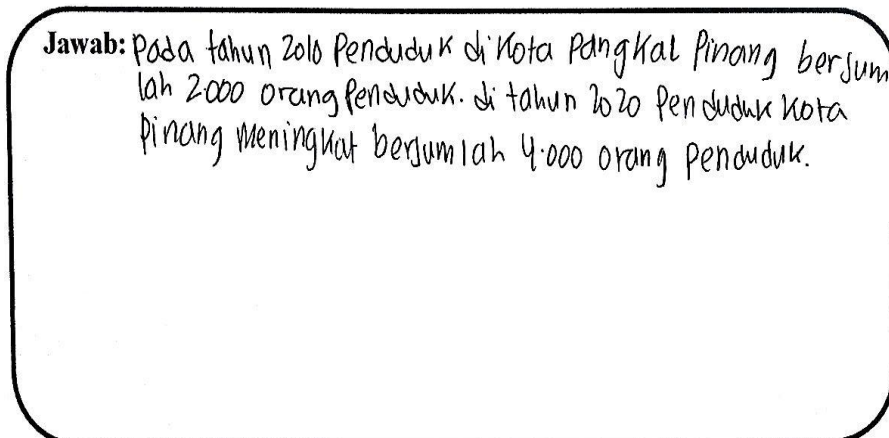 Jawab: Pada tahun 2010 Penduduk di Kota Pangkal Pinang bersum
lah 2.000 orang Penduduk. di tahun 2020 Penduduk Kota
Pinang Meningkat berjumlah 4.000 orang penduduk.